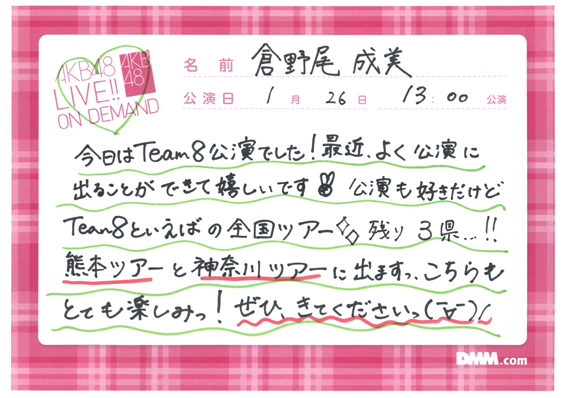 AKB48
LIVE!!
ON DEMAND
AKB
48
名前 倉野尾 成美
公演日 1月 26日 13:00 公演
今日はTeam8公演でした!最近、よく公演に
出ることができて嬉しいです✌ 公演も好きだけど
Team8といえばの全国ツアー✧✧残り 3県...!!
熊本ツアーと神奈川ツアーに出ますっ、こちらも
とても楽しみっ!ぜひ、きてくださいっ(¯∀¯)!
DMM.com